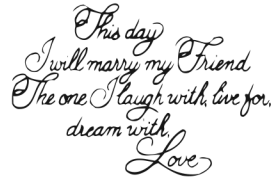 This day
I will marry my Friend
The one I laugh with, live for,
dream with,
Love